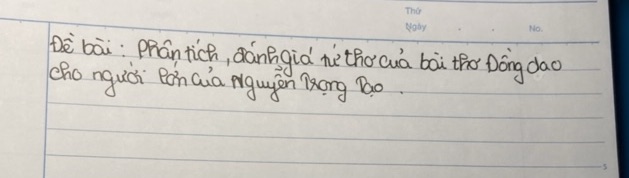 Thứ
Ngày . . No.
Đề bài : Phân tích, đánh giá tứ thơ của bài thơ Đồng dao
cho người lớn của Nguyễn Trọng Tạo .